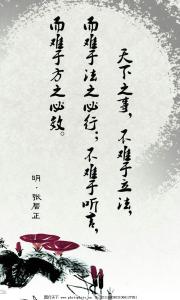 天下之事，不难于立法，
而难于法之必行；不难于听言，
而难于方之必效。
明·张居正